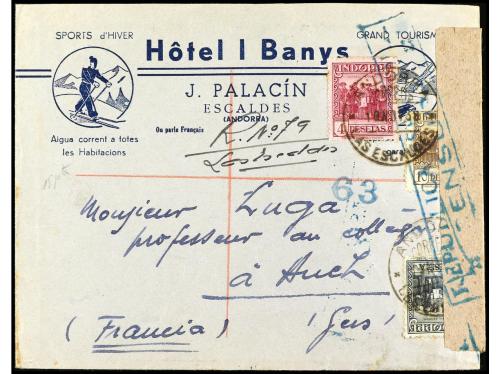 SPORTS d'HIVER
GRAND TOURISM
Hôtel I Banys
J. PALACÍN
ESCALDES
(ANDORRA)
On parle Français
Aigua corrent a totes
les Habitacions
R. Nº 79
Les Escaldes
ANDORRA
4 PESETAS
LAS ESCALDES
63
Monsieur Luga
professeur au collège
à Auch
(Francia) (Gers)